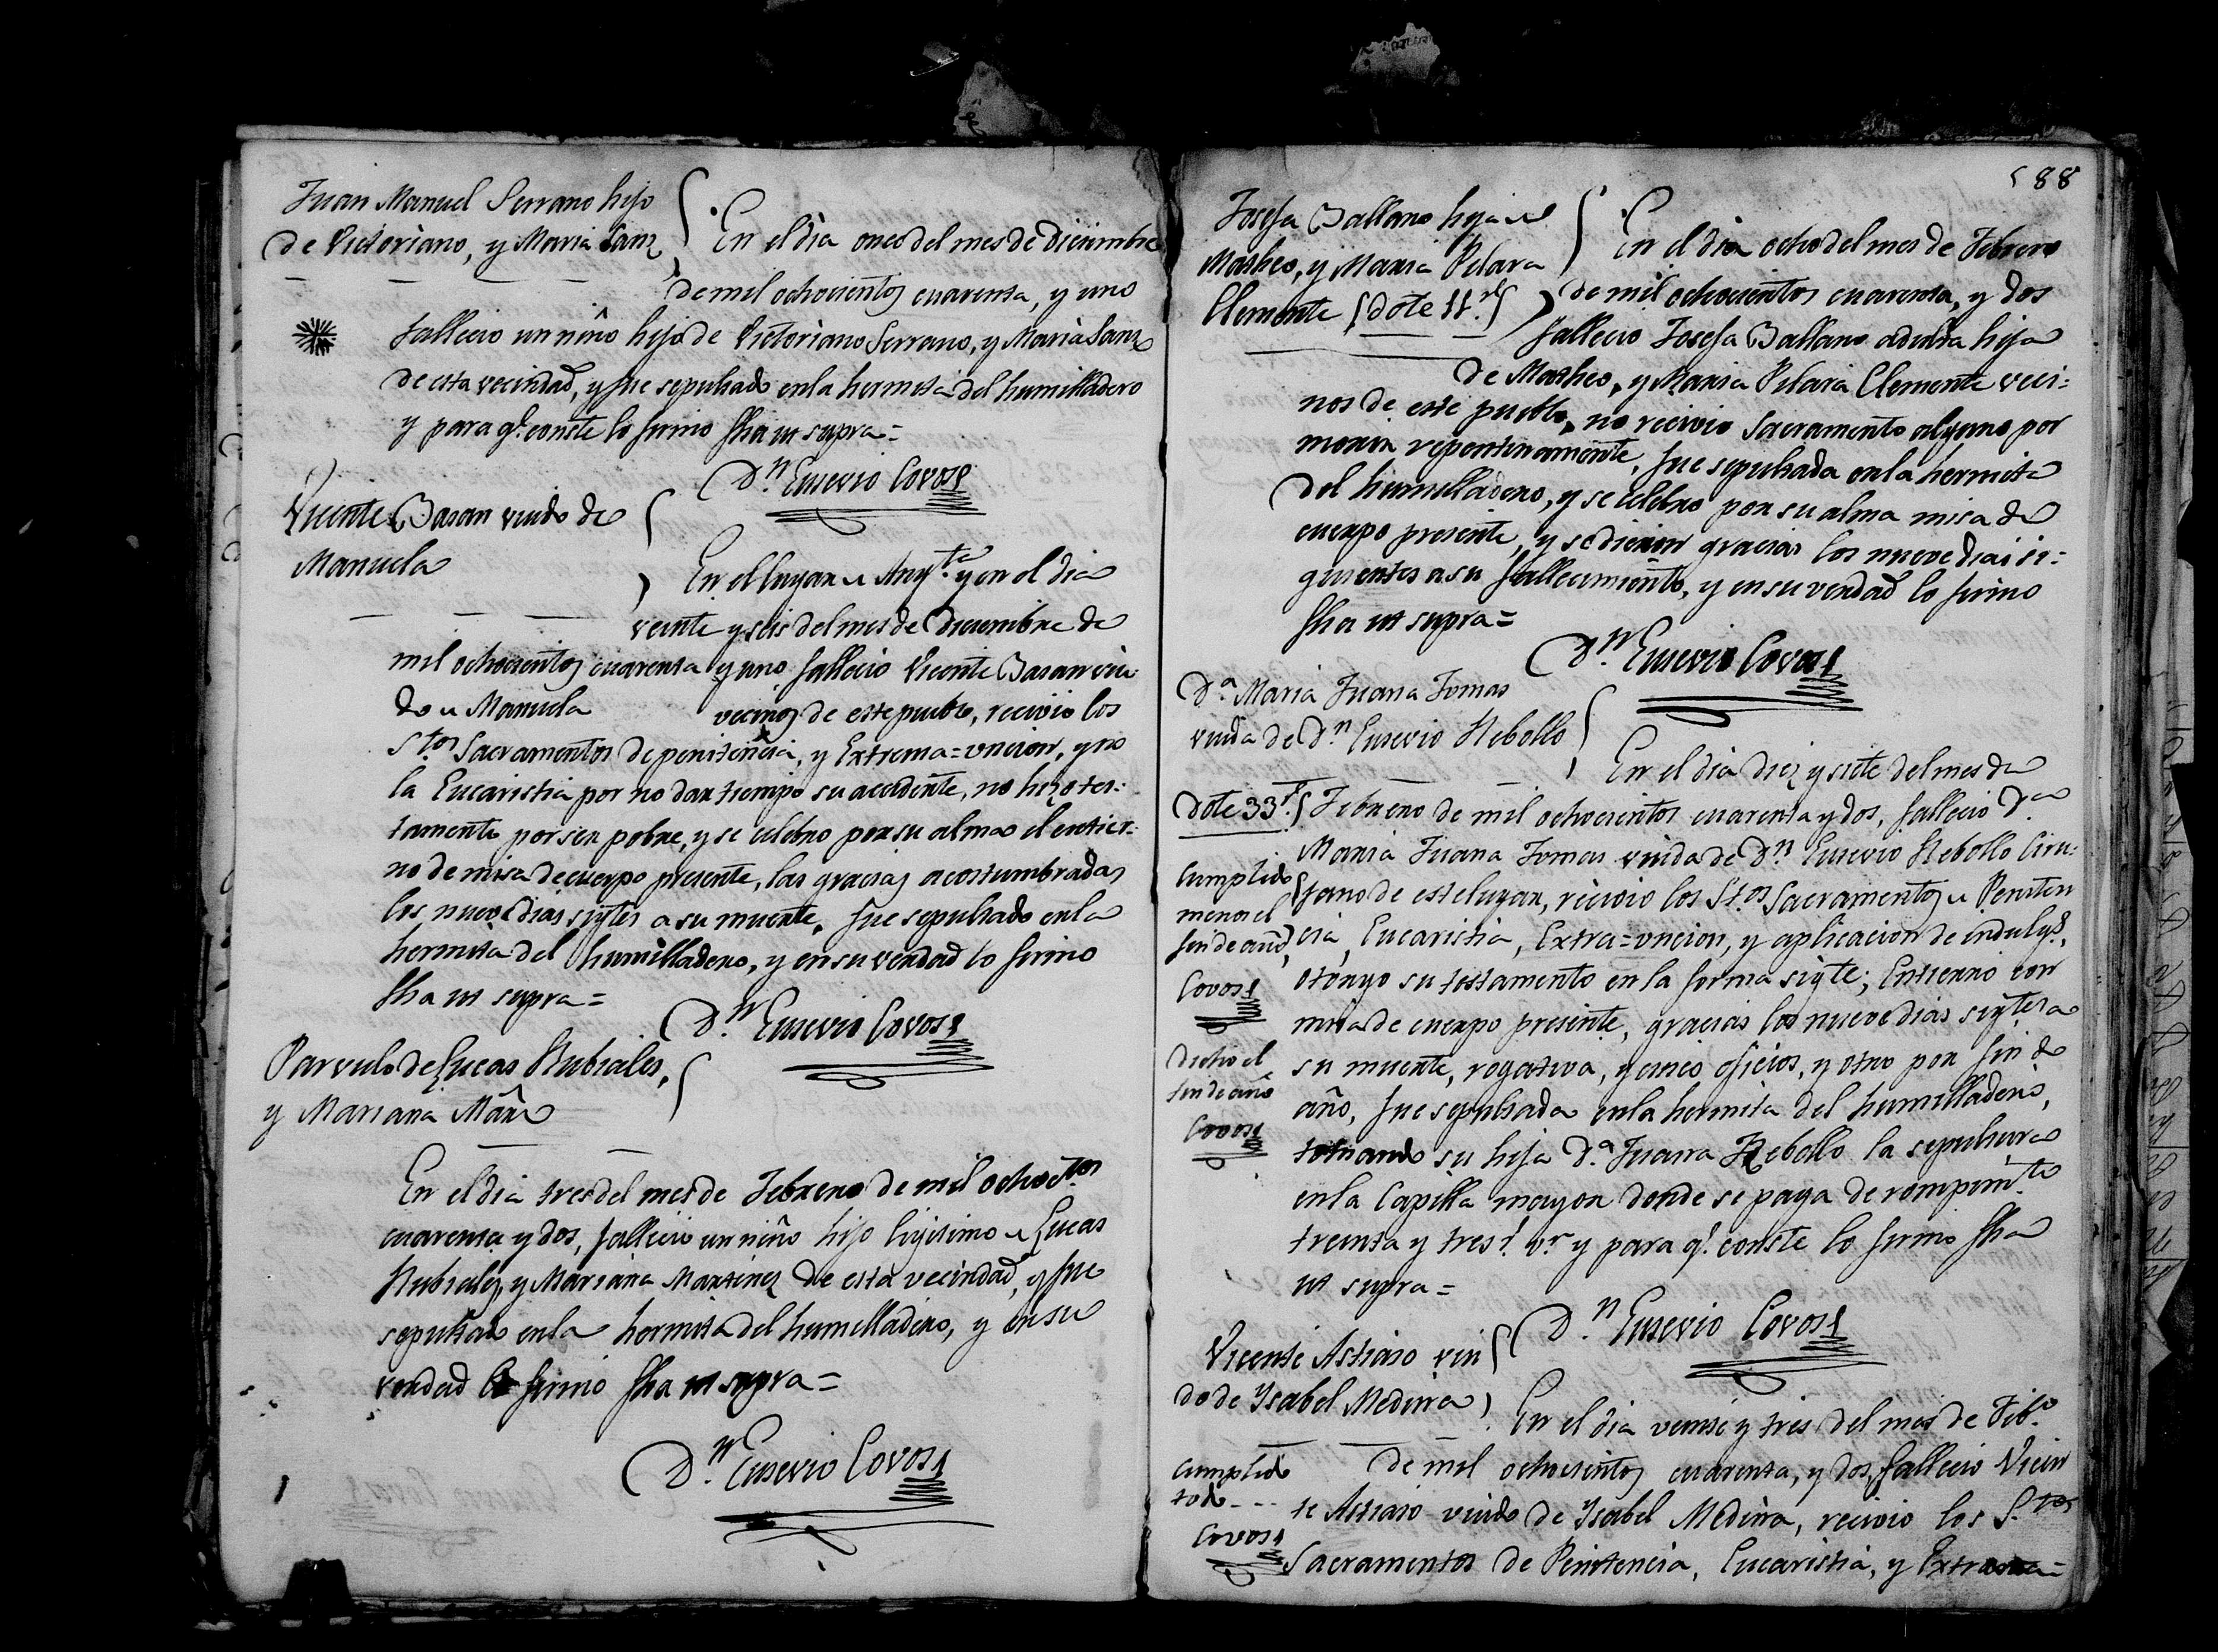 Juan Manuel Serrano hijo
de Victoriano, y Maria Sanz
En el dia once del mes de diciembre
de mil ochocientos cuarenta, y uno
fallecio un niño hijo de Victoriano Serrano, y Maria Sanz
de esta vecindad, y fue sepultado en la hermita del humilladero
y para qe. conste lo firmo fha ut supra=
Dn. Eusevio Covos
Vicente Basan viudo de
Manuela
En el lugar de Angte. y en el dia
veinte y seis del mes de diciembre de
mil ochocientos cuarenta y uno fallecio Vicente Basan viu
do de Manuela vecinos de este pueblo, recivio los
Stos Sacramentos de penitencia, y Extrema=uncion, y no
la Eucaristia por no dar tiempo su accidente, no hizo tes:
tamento por ser pobre, y se celebro por su alma el entier:
ro de misa de cuerpo presente, las gracias acostumbradas
los nueve dias sigtes a su muerte, fue sepultado en la
hermita del humilladero, y en su verdad lo firmo
fha ut supra=
Dn. Eusevio Covos
Parvulo de Lucas Rubiales,
y Mariana Marz
En el dia tres del mes de Febrero de mil ochoctos
cuarenta y dos, fallecio un niño hijo ligitimo de Lucas
Rubiales, y Mariana Martinez de esta vecindad, y fue
sepultado en la hermita del humilladero, y en su
verdad lo firmo fha ut supra=
Dn. Eusevio Covos
588
Josefa Ballano hija de
Matheo, y Maria Pilara
Clemente dote 11 rs
En el dia ocho del mes de Febrero
de mil ochocientos cuarenta, y dos
fallecio Josefa Ballano adulta hija
de Matheo, y Maria Pilara Clemente veci:
nos de este pueblo, no recivio Sacramento alguno por
morir repentinamente, fue sepultada en la hermita
del humilladero, y se celebro por su alma misa de
cuerpo presente, y se dieron gracias los nueve dias si:
guientes a su fallecimiento, y en su verdad lo firmo
fha ut supra=
Dn. Eusevio Covos
Da. Maria Juana Tomas
viuda de Dn. Eusevio Rebollo
Dote 33 rs
En el dia diez y siete del mes de
Febrero de mil ochocientos cuarenta y dos, fallecio Da.
Maria Juana Tomas viuda de Dn. Eusevio Rebollo Ciru:
jano de este lugar, recivio los Stos Sacramentos de Peniten
cia, Eucaristia, Extra=uncion, y aplicacion de indulgs,
otorgo su testamento en la forma sigte; Entierro con
misa de cuerpo presente, gracias los nueve dias sigtes a
su muerte, rogativa, y cinco oficios, y otro por fin de
año, fue sepultada en la hermita del humilladero,
tomando su hija Da. Juana Rebollo la sepultura
en la Capilla mayor donde se paga de rompimto
treinta y tres rs. vn. y para qe. conste lo firmo fha
ut supra=
Dn. Eusevio Covos
Cumplido
menos el
fin de año,
Covos
Dicho el
fin de año
Covos
Vicente Astiaso viu
do de Ysabel Medina
En el dia veinte y tres del mes de Febo.
de mil ochocientos cuarenta, y dos, fallecio Vicen
te Astiaso viudo de Ysabel Medina, recivio los Stos
Sacramentos de Penitencia, Eucaristia, y Extrama=
Cumplido
todo---
Covos